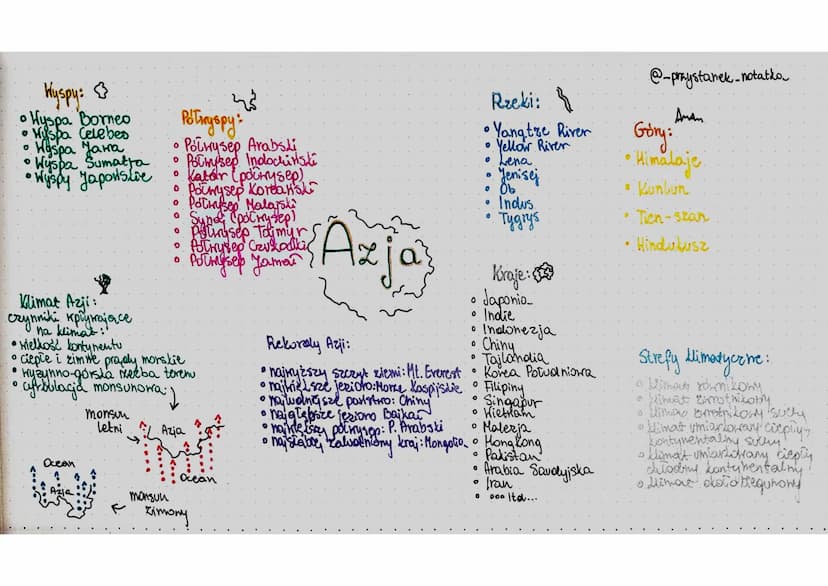 @_przystanek_notatka
Wyspy:
Wyspa Borneo
Wyspa Celebes
Wyspa Jawa
Wyspa Sumatra
Wyspy Japońskie
Półwyspy:
Półwysep Arabski
Półwysep Indochiński
Katar (półwysep)
Półwysep Koreański
Półwysep Malajski
Synaj (półwysep)
Półwysep Tajmyr
Półwysep Czukocki
Półwysep Jamał
Azja
Rzeki:
Yangtze River
Yellow River
Lena
Jenisej
Ob
Indus
Tygrys
Góry:
Himalaje
Kunlun
Tien-szan
Hindukusz
Klimat Azji:
czynniki wpływające
na klimat:
wielkość kontynentu
ciepłe i zimne prądy morskie
wyżynno-górska rzeźba terenu
cyrkulacja monsunowa
monsun
letni
Azja
Ocean
Ocean
Azja
monsun
zimowy
Rekordy Azji:
najwyższy szczyt ziemi: Mt. Everest
największe jezioro: Morze Kaspijskie
najludniejsze państwo: Chiny
najgłębsze jezioro Bajkał
największy półwysep: P. Arabski
najsłabiej zaludniony kraj: Mongolia
Kraje:
Japonia
Indie
Indonezja
Chiny
Tajlandia
Korea Południowa
Filipiny
Singapur
Wietnam
Malezja
Hongkong
Pakistan
Arabia Saudyjska
Iran
Itd...
Strefy klimatyczne:
klimat równikowy
klimat zwrotnikowy
klimat zwrotnikowy suchy
klimat umiarkowany ciepły,
kontynentalny suchy
klimat umiarkowany ciepły
chłodny kontynentalny
klimat okołobiegunowy